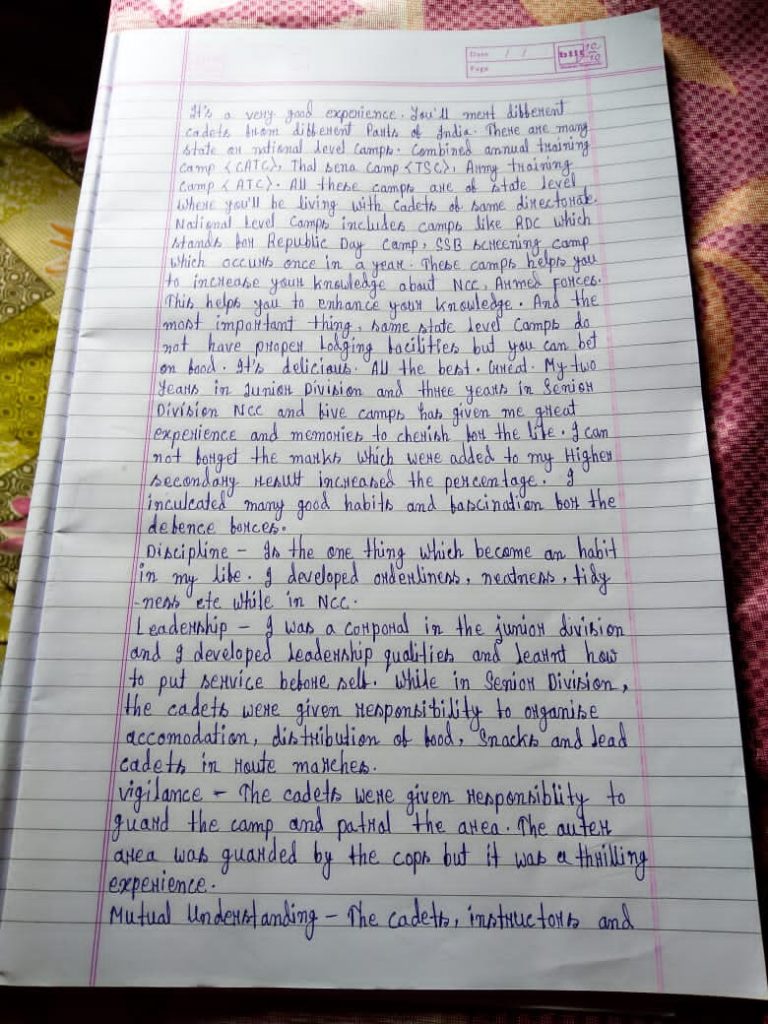 Date / /
Page
It's a very good experience. You'll meet different
cadets from different Parts of India. There are many
state or national level camps. Combined annual training
camp <CATC>, Thal sena Camp <TSC>, Army training
Camp <ATC>. All these camps are of state level
where you'll be living with cadets of same directorate.
National Level Camps includes camps like RDC which
stands for Republic Day Camp, SSB screening camp
which occurs once in a year. These camps helps you
to increase your knowledge about NCC, Armed forces.
This helps you to enhance your knowledge. And the
most important thing, some state level camps do
not have proper lodging facilities but you can bet
on food. It's delicious. All the best. Great. My two
Years in Junior Division and three years in Senior
Division NCC and five camps has given me great
experience and memories to cherish for the life. I can
not forget the marks which were added to my Higher
secondary result increased the percentage. I
inculcated many good habits and fascination for the
defence forces.
Discipline - Is the one thing which become an habit
in my life. I developed orderliness, neatness, tidy
-ness etc while in NCC.
Leadership - I was a corporal in the junior division
and I developed leadership qualities and learnt how
to put service before self. While in Senior Division,
the cadets were given responsibility to organise
accomodation, distribution of food, Snacks and lead
cadets in route marches.
Vigilance - The cadets were given responsiblity to
guard the camp and patral the area. The auter
area was guarded by the cops but it was a thrilling
experience.
Mutual Understanding - The cadets, instructors and